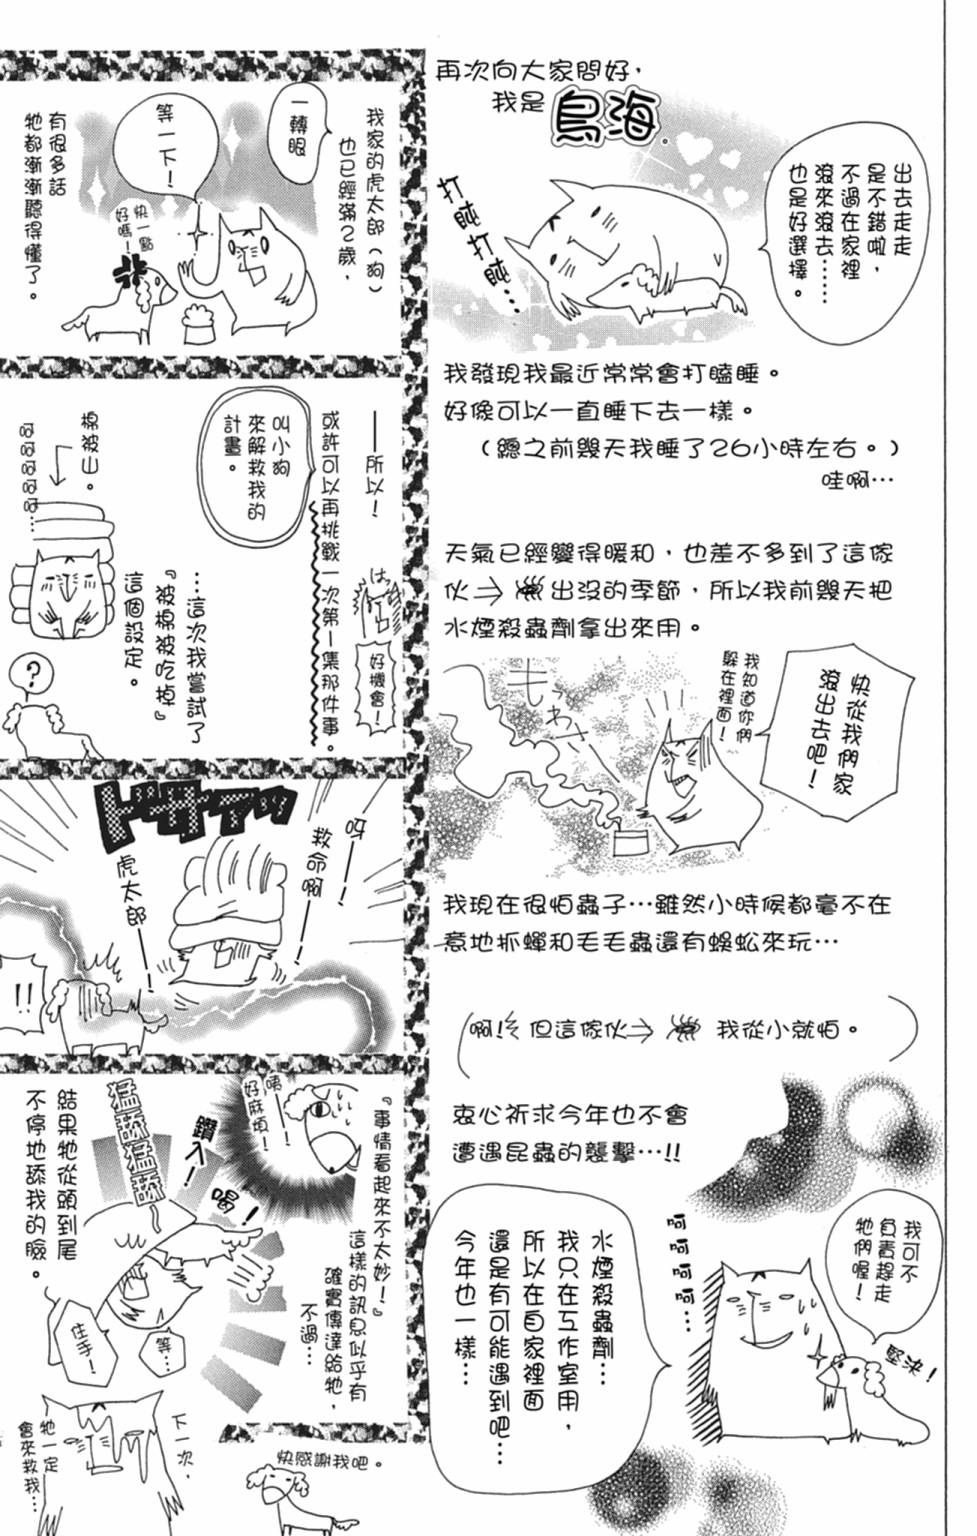 再次向大家問好，
我是鳥海。
出去走走
是不錯啦，
不過在家裡
滾來滾去……
也是好選擇。
打盹打盹…
我發現我最近常常會打瞌睡。
好像可以一直睡下去一樣。
（總之前幾天我睡了26小時左右。）
哇啊…
天氣已經變得暖和，也差不多到了這傢
伙→出沒的季節，所以我前幾天把
水煙殺蟲劑拿出來用。
快從我們家
滾出去吧！
我知道你們
躲在裡面！
もわっ
我現在很怕蟲子…雖然小時候都毫不在
意地抓蟬和毛毛蟲還有蜈蚣來玩…
（啊！但這傢伙→我從小就怕。）
衷心祈求今年也不會
遭遇昆蟲的襲擊…!!
我可不
負責趕走
牠們喔！
堅決！
呵呵呵呵…
水煙殺蟲劑…
我只在工作室用，
所以在自家裡面
還是有可能遇到吧…
今年也一樣…
我家的虎太郎（狗）
也已經滿2歲，
一轉眼
等一下！
快一點
好嗎！
有很多話
牠都漸漸聽得懂了。
——所以！
或許可以再挑戰一次第1集那件事。
は
好機會！
叫小狗
來解救我的
計畫。
…這次我嘗試了
『被棉被吃掉』
這個設定。
棉被出。
呵呵呵呵呵…
？
ドサアア的
呀——！
救命啊——！
虎太郎——！
!!
『事情看起來不太妙！』
這樣的訊息似乎有
確實傳達給牠，
不過…
唷——！
好麻煩！
鑽入！
喝！
猛舔猛舔
結果牠從頭到尾
不停地舔我的臉。
等…
住手！
下一次，
牠一定
會來救我…
快感謝我吧。